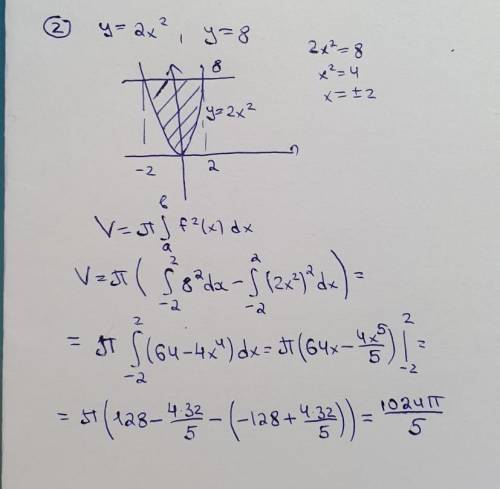 ② y = 2x², y = 8
2x² = 8
x² = 4
x = ±2
8
y = 2x²
-2 2
V = π ∫ₐᵇ f²(x) dx
V = π ( ∫₋₂² 8² dx - ∫₋₂² (2x²)² dx ) =
= π ∫₋₂² (64 - 4x⁴) dx = π (64x - 4x⁵/5) |₋₂² =
= π (128 - 4·32/5 - (-128 + 4·32/5)) = 1024π/5